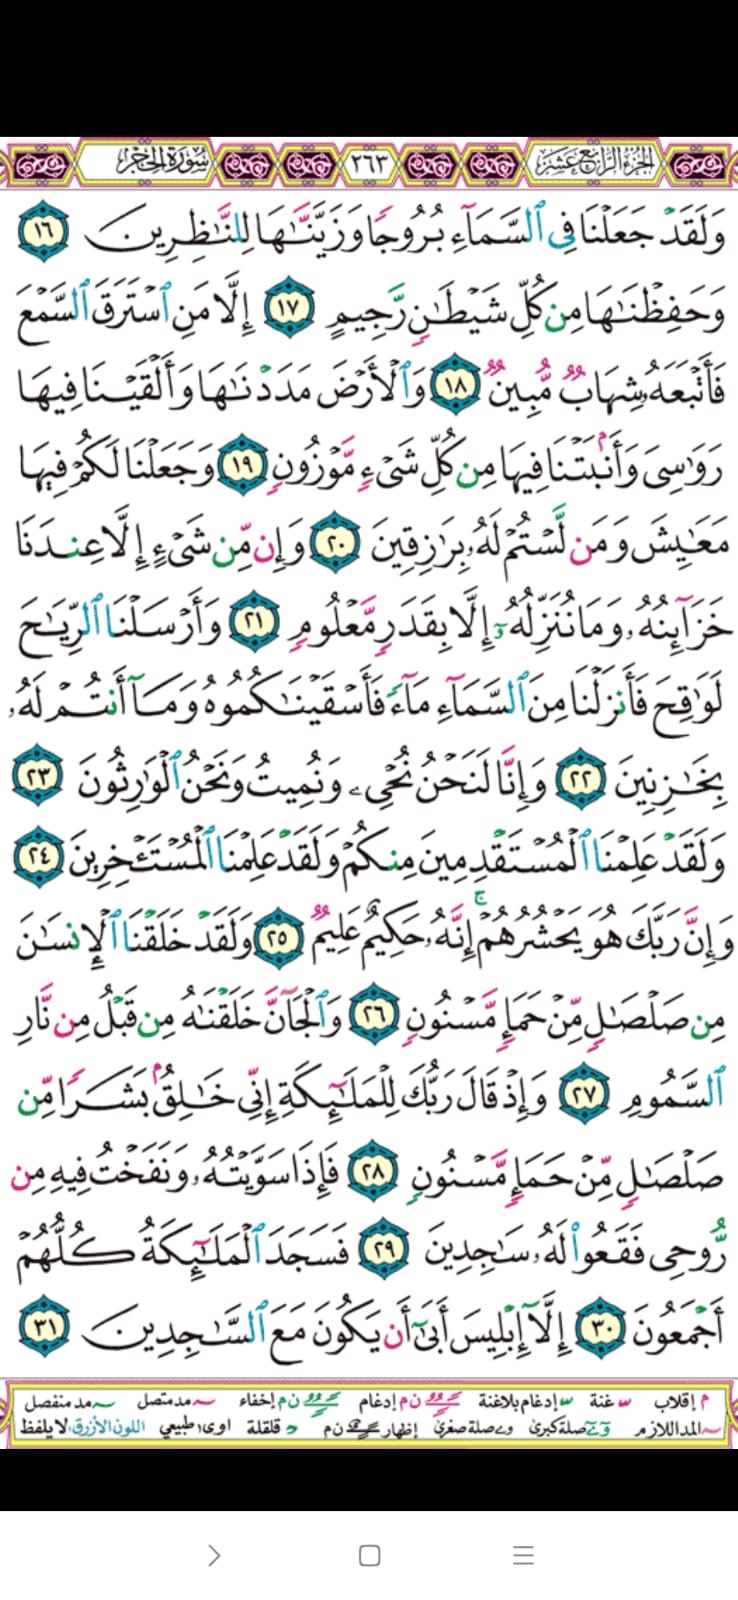 الجزء الرابع عشر ٢٦٣ سورة الحجر
وَلَقَدْ جَعَلْنَا فِي ٱلسَّمَآءِ بُرُوجًا وَزَيَّنَّٰهَا لِلنَّٰظِرِينَ ١٦
وَحَفِظْنَٰهَا مِن كُلِّ شَيْطَٰنٍ رَّجِيمٍ ١٧ إِلَّا مَنِ ٱسْتَرَقَ ٱلسَّمْعَ
فَأَتْبَعَهُۥ شِهَابٌ مُّبِينٌ ١٨ وَٱلْأَرْضَ مَدَدْنَٰهَا وَأَلْقَيْنَا فِيهَا
رَوَٰسِيَ وَأَنۢبَتْنَا فِيهَا مِن كُلِّ شَيْءٍ مَّوْزُونٍ ١٩ وَجَعَلْنَا لَكُمْ فِيهَا
مَعَٰيِشَ وَمَن لَّسْتُمْ لَهُۥ بِرَٰزِقِينَ ٢٠ وَإِن مِّن شَيْءٍ إِلَّا عِندَنَا
خَزَآئِنُهُۥ وَمَا نُنَزِّلُهُۥٓ إِلَّا بِقَدَرٍ مَّعْلُومٍ ٢١ وَأَرْسَلْنَا ٱلرِّيَٰحَ
لَوَٰقِحَ فَأَنزَلْنَا مِنَ ٱلسَّمَآءِ مَآءً فَأَسْقَيْنَٰكُمُوهُ وَمَآ أَنتُمْ لَهُۥ
بِخَٰزِنِينَ ٢٢ وَإِنَّا لَنَحْنُ نُحْيِۦ وَنُمِيتُ وَنَحْنُ ٱلْوَٰرِثُونَ ٢٣
وَلَقَدْ عَلِمْنَا ٱلْمُسْتَقْدِمِينَ مِنكُمْ وَلَقَدْ عَلِمْنَا ٱلْمُسْتَـْٔخِرِينَ ٢٤
وَإِنَّ رَبَّكَ هُوَ يَحْشُرُهُمْ ۚ إِنَّهُۥ حَكِيمٌ عَلِيمٌ ٢٥ وَلَقَدْ خَلَقْنَا ٱلْإِنسَٰنَ
مِن صَلْصَٰلٍ مِّنْ حَمَإٍ مَّسْنُونٍ ٢٦ وَٱلْجَآنَّ خَلَقْنَٰهُ مِن قَبْلُ مِن نَّارِ
ٱلسَّمُومِ ٢٧ وَإِذْ قَالَ رَبُّكَ لِلْمَلَٰٓئِكَةِ إِنِّي خَٰلِقٌۢ بَشَرًا مِّن
صَلْصَٰلٍ مِّنْ حَمَإٍ مَّسْنُونٍ ٢٨ فَإِذَا سَوَّيْتُهُۥ وَنَفَخْتُ فِيهِ مِن
رُّوحِي فَقَعُوا۟ لَهُۥ سَٰجِدِينَ ٢٩ فَسَجَدَ ٱلْمَلَٰٓئِكَةُ كُلُّهُمْ
أَجْمَعُونَ ٣٠ إِلَّآ إِبْلِيسَ أَبَىٰٓ أَن يَكُونَ مَعَ ٱلسَّٰجِدِينَ ٣١
م إقلاب غنة إدغام بلاغنة ن م إدغام ن م إخفاء مد متصل مد منفصل
المد اللازم صلة كبرى صلة صغرى إظهار ن م قلقلة اوى طبيعي اللون الأزرق: لا يلفظ